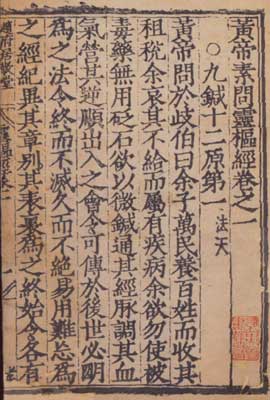 黃帝素問靈樞經卷之一
○九鍼十二原第一 法天
黃帝問於歧伯曰余子萬民養百姓而收其
租稅余哀其不給而屬有疾病余欲勿使被
毒藥無用砭石欲以微鍼通其經脉調其血
氣營其逆順出入之會令可傳於後世必明
為之法令終而不滅久而不絕易用難忘為
之經紀異其章別其表裏為之終始令各有